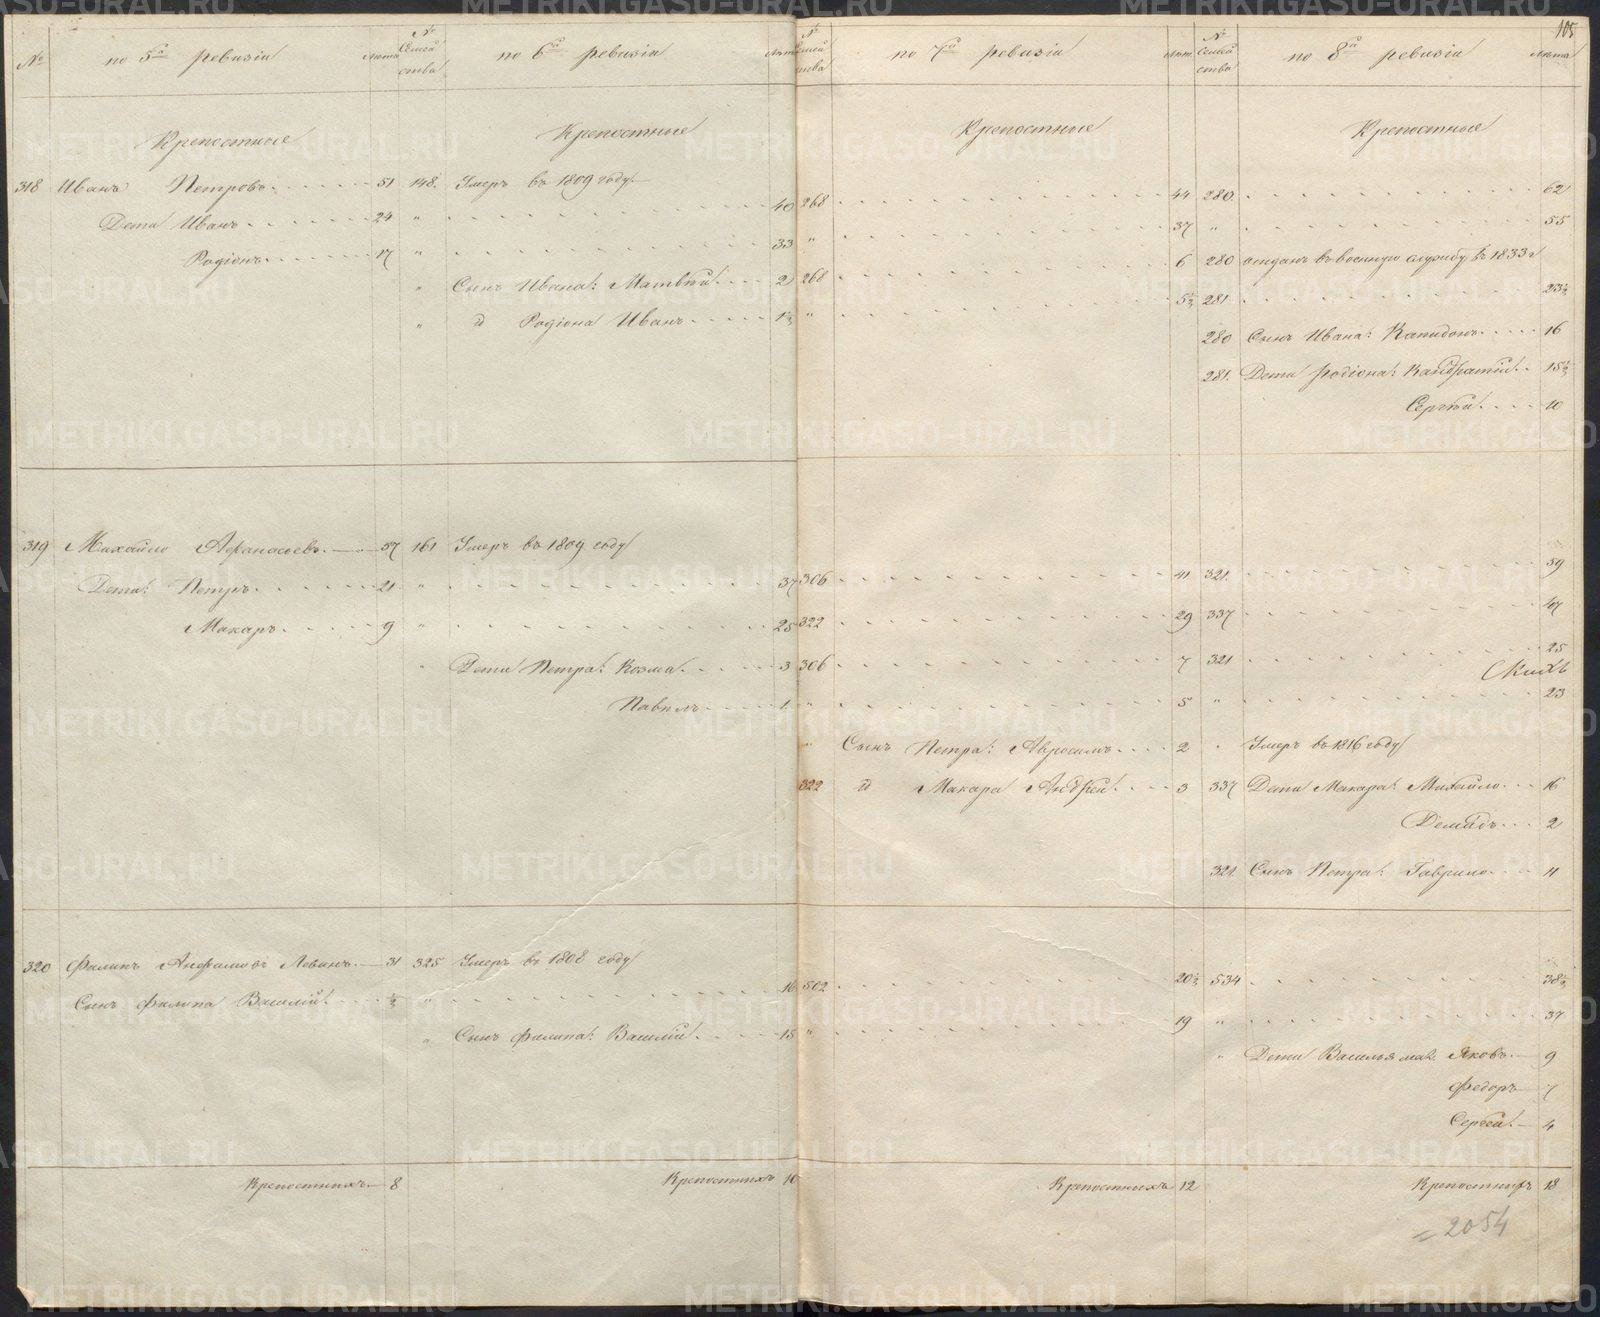 105
№ по 5й ревизіи Лѣта № Семей ства по 6й ревизіи Лѣта № Семей ства по 7й ревизіи Лѣта № Семей ства по 8й ревизіи Лѣта
Крепостные Крепостные Крепостные Крепостные
318 Иванъ Петровъ 51 148. Умеръ въ 1809 году
Дети Иванъ 24 " 40 268 44 280. 62
Родіонъ 17 " 33 " 37 " 55
" Сынъ Ивана: Матвѣй 2 268 6 280 отданъ въ военную службу въ 1833 г
" д Родіона Иванъ 1½ " 5½ 281 23½
280 Сынъ Ивана: Капидонъ 16
281. Дети Родіона: Кандратій 15½
Сергѣй 10
319 Михайло Афанасьевъ 57 161 Умеръ въ 1809 году
Дети: Петръ 21 " 37 306 41 321. 59
Макаръ 9 " 25 322 29 337 47
" Дети Петра: Козма 3 306 7 321 25
Павилъ 1 " 5 " 23
" Сынъ Петра: Авросимъ 2 " Умеръ въ 1816 году
322 д Макара Андрей 3 337 Дети Макара: Михайло 16
Демидъ 2
321. Сынъ Петра: Гаврило 11
320 Филипъ 31 325 Умеръ въ 1808 году
Сынъ Филипа Василій ½ " 16 502 20½ 534 38½
" Сынъ Филипа: Василій 15 " 19 " 37
" Дети Василья Яковъ 9
Федоръ 7
Сергей 4
Крепостныхъ 8 Крепостныхъ 10 Крепостныхъ 12 Крепостныхъ 18
= 2054
METRIKI.GASO-URAL.RU